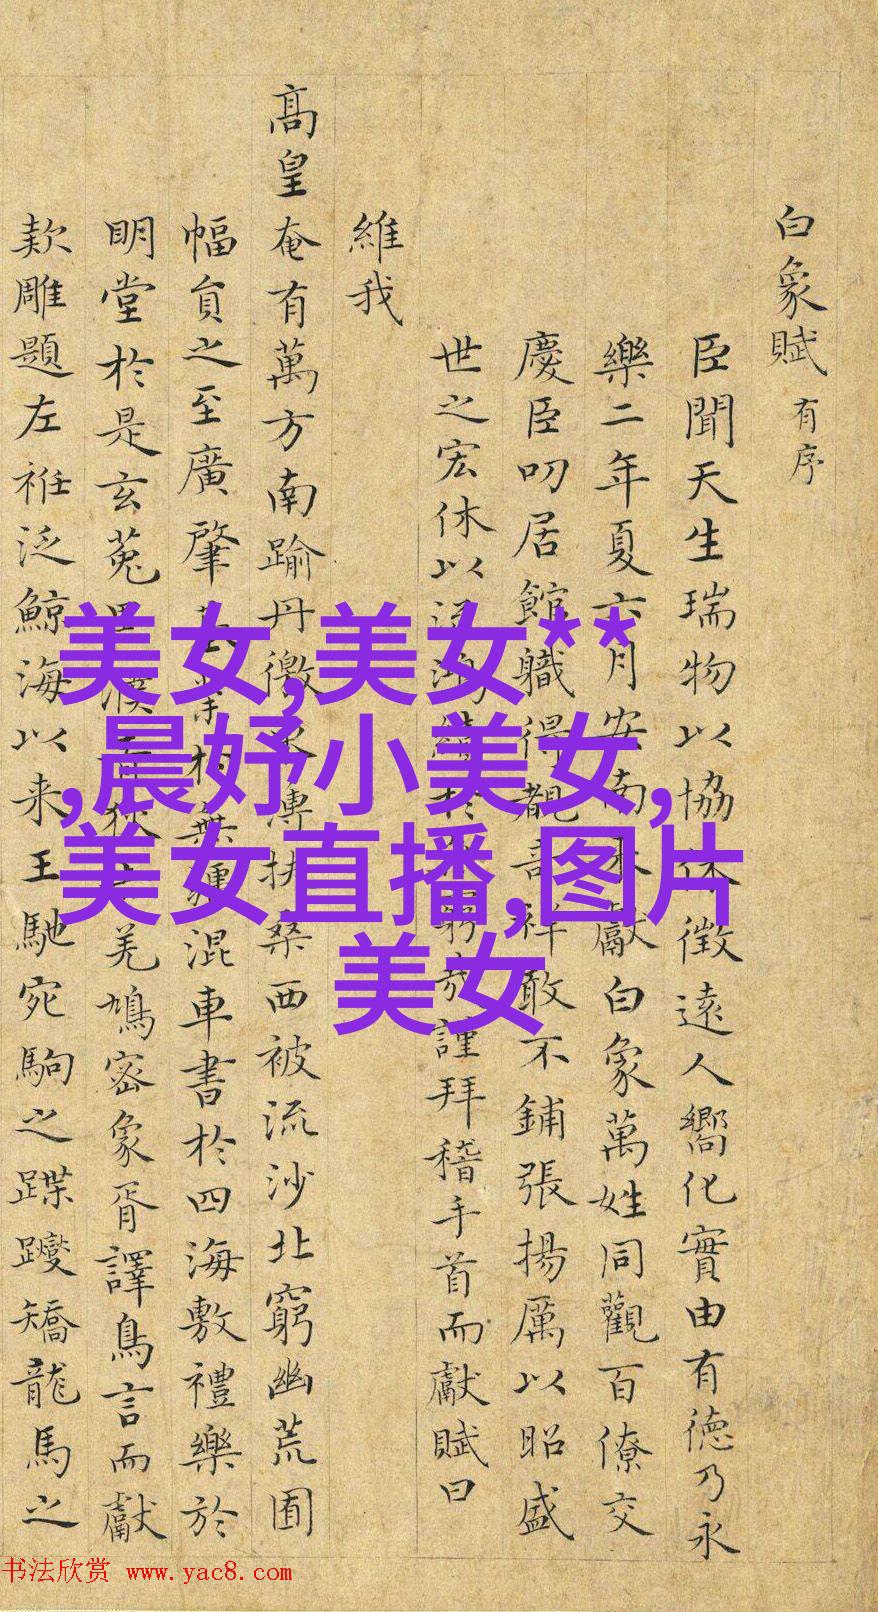 白象賦 有序
臣聞天生瑞物以協休徵遠人嚮化實由有德乃永
樂二年夏六月安南來獻白象萬姓同觀百僚交
慶臣叨居館職得覩奇祥敢不鋪張揚厲以昭盛
世之宏休以於謹拜稽手首而獻賦曰
維我
髙皇奄有萬方南踰丹徼東薄扶桑西被流沙北窮幽荒囿
幅貟之至廣肇無混車書於四海敷禮樂於
明堂於是玄菟羌鳩密象胥譯鳥言而獻
欵雕題左袵泛鯨海以来王馳宛駒之蹀躞矯龍馬之
美女,美女**
,晨妤小美女,
美女直播,图片
美女
书法欣赏 www.yac8.com